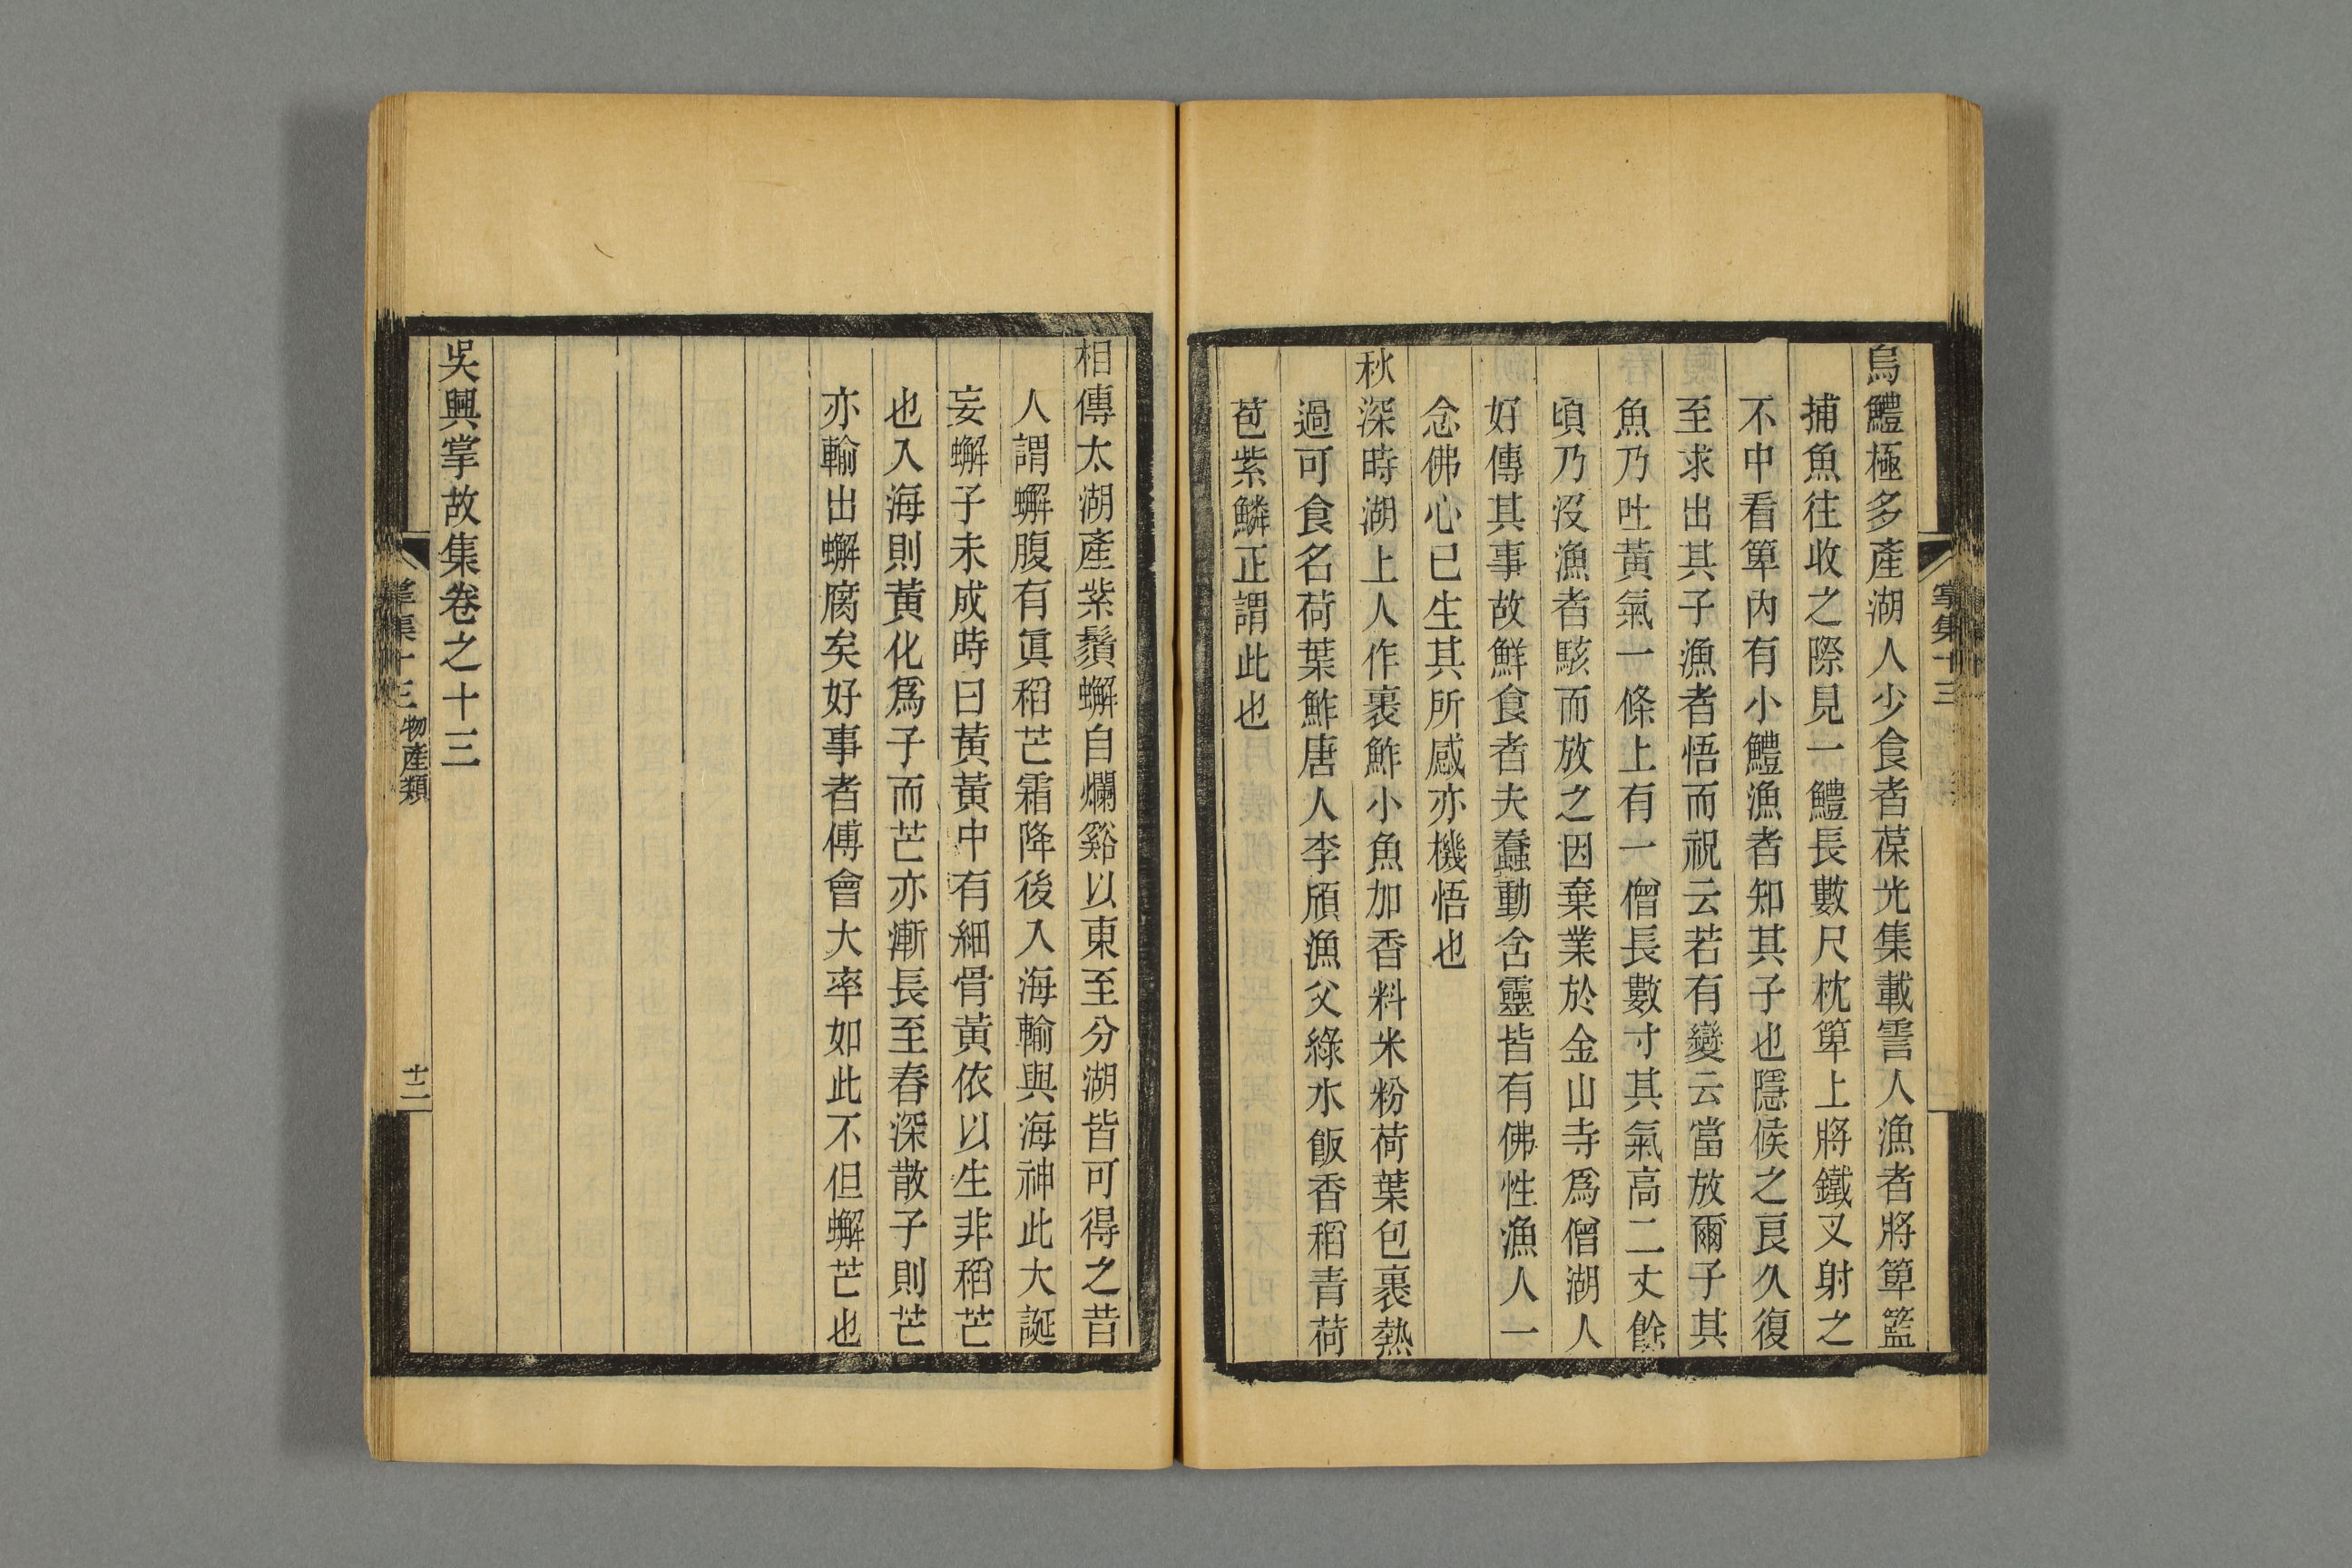 烏鱧極多產湖人少食者葆光集載霅人漁者將箄籃
捕魚往收之際見一鱧長數尺枕箄上將鐵叉射之
不中看箄內有小鱧漁者知其子也隱候之良久復
至求出其子漁者悟而祝云若有變云當放爾子其
魚乃吐黃氣一條上有一僧長數寸其氣高二丈餘
頃乃沒漁者駭而放之因棄業於金山寺爲僧湖人
好傳其事故鮮食者夫蠢動含靈皆有佛性漁人一
念佛心已生其所感亦機悟也
秋深時湖上人作裹鮓小魚加香料米粉荷葉包裹熱
過可食名荷葉鮓唐人李頎漁父綠水飯香稻青荷
苞紫鱗正謂此也
掌集十三
相傳太湖產紫鬚蠏自爛谿以東至分湖皆可得之昔
人謂蠏腹有眞稻芒霜降後入海輸與海神此大誕
妄蠏子未成時曰黃黃中有細骨黃依以生非稻芒
也入海則黃化爲子而芒亦漸長至春深散子則芒
亦輸出蠏腐矣好事者傅會大率如此不但蠏芒也
吳興掌故集卷之十三
掌集十三 物產類 十二